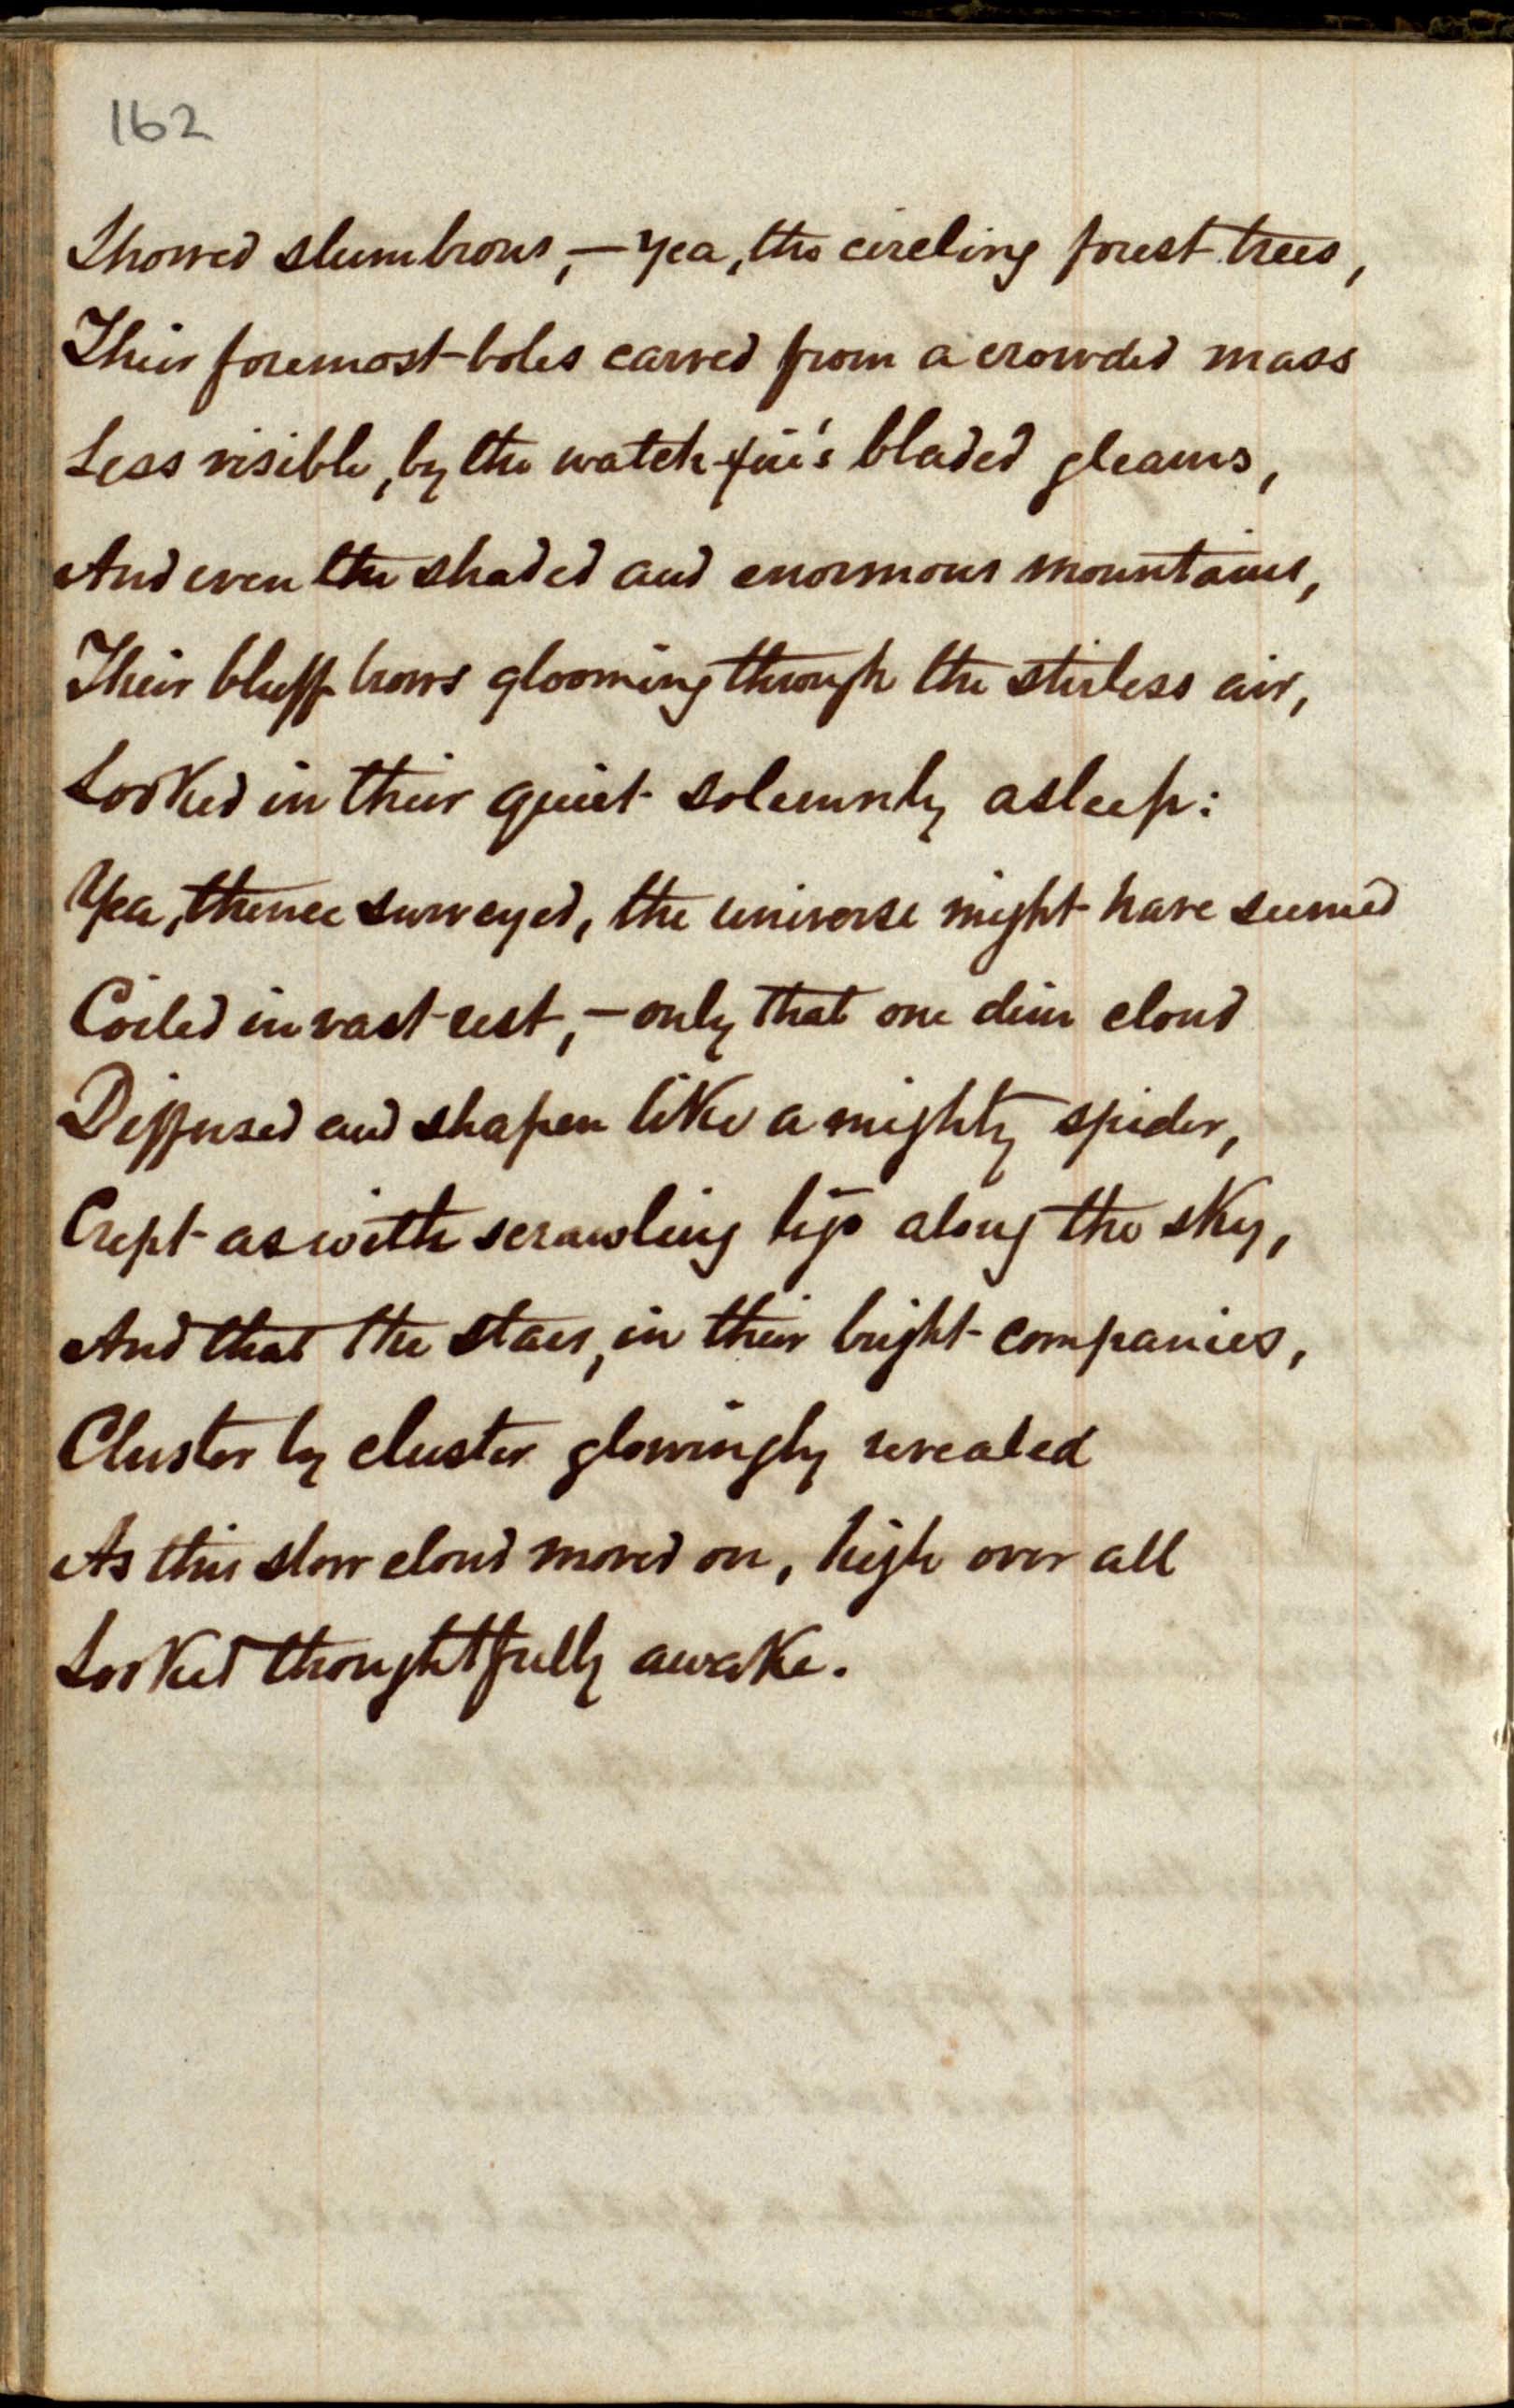 162
Showed slumbrous,—Yea, the circling forest trees,
Their foremost boles carved from a crowded mass
Less visible, by the watch-fire's bladed gleams,
And even the shaded and enormous mountains,
Their bluff brows glooming through the stirless air,
Looked in their quiet solemnly asleep:
Yea, thence surveyed, the universe might have seemed
Coiled in vast rest,—only that one dim cloud
Diffused and shapen like a mighty spider,
Crept as with scrawling legs along the sky,
And that the stars, in their bright companies,
Cluster by cluster glowingly revealed
As this slow cloud moved on, high over all
Looked thoughtfully awake.